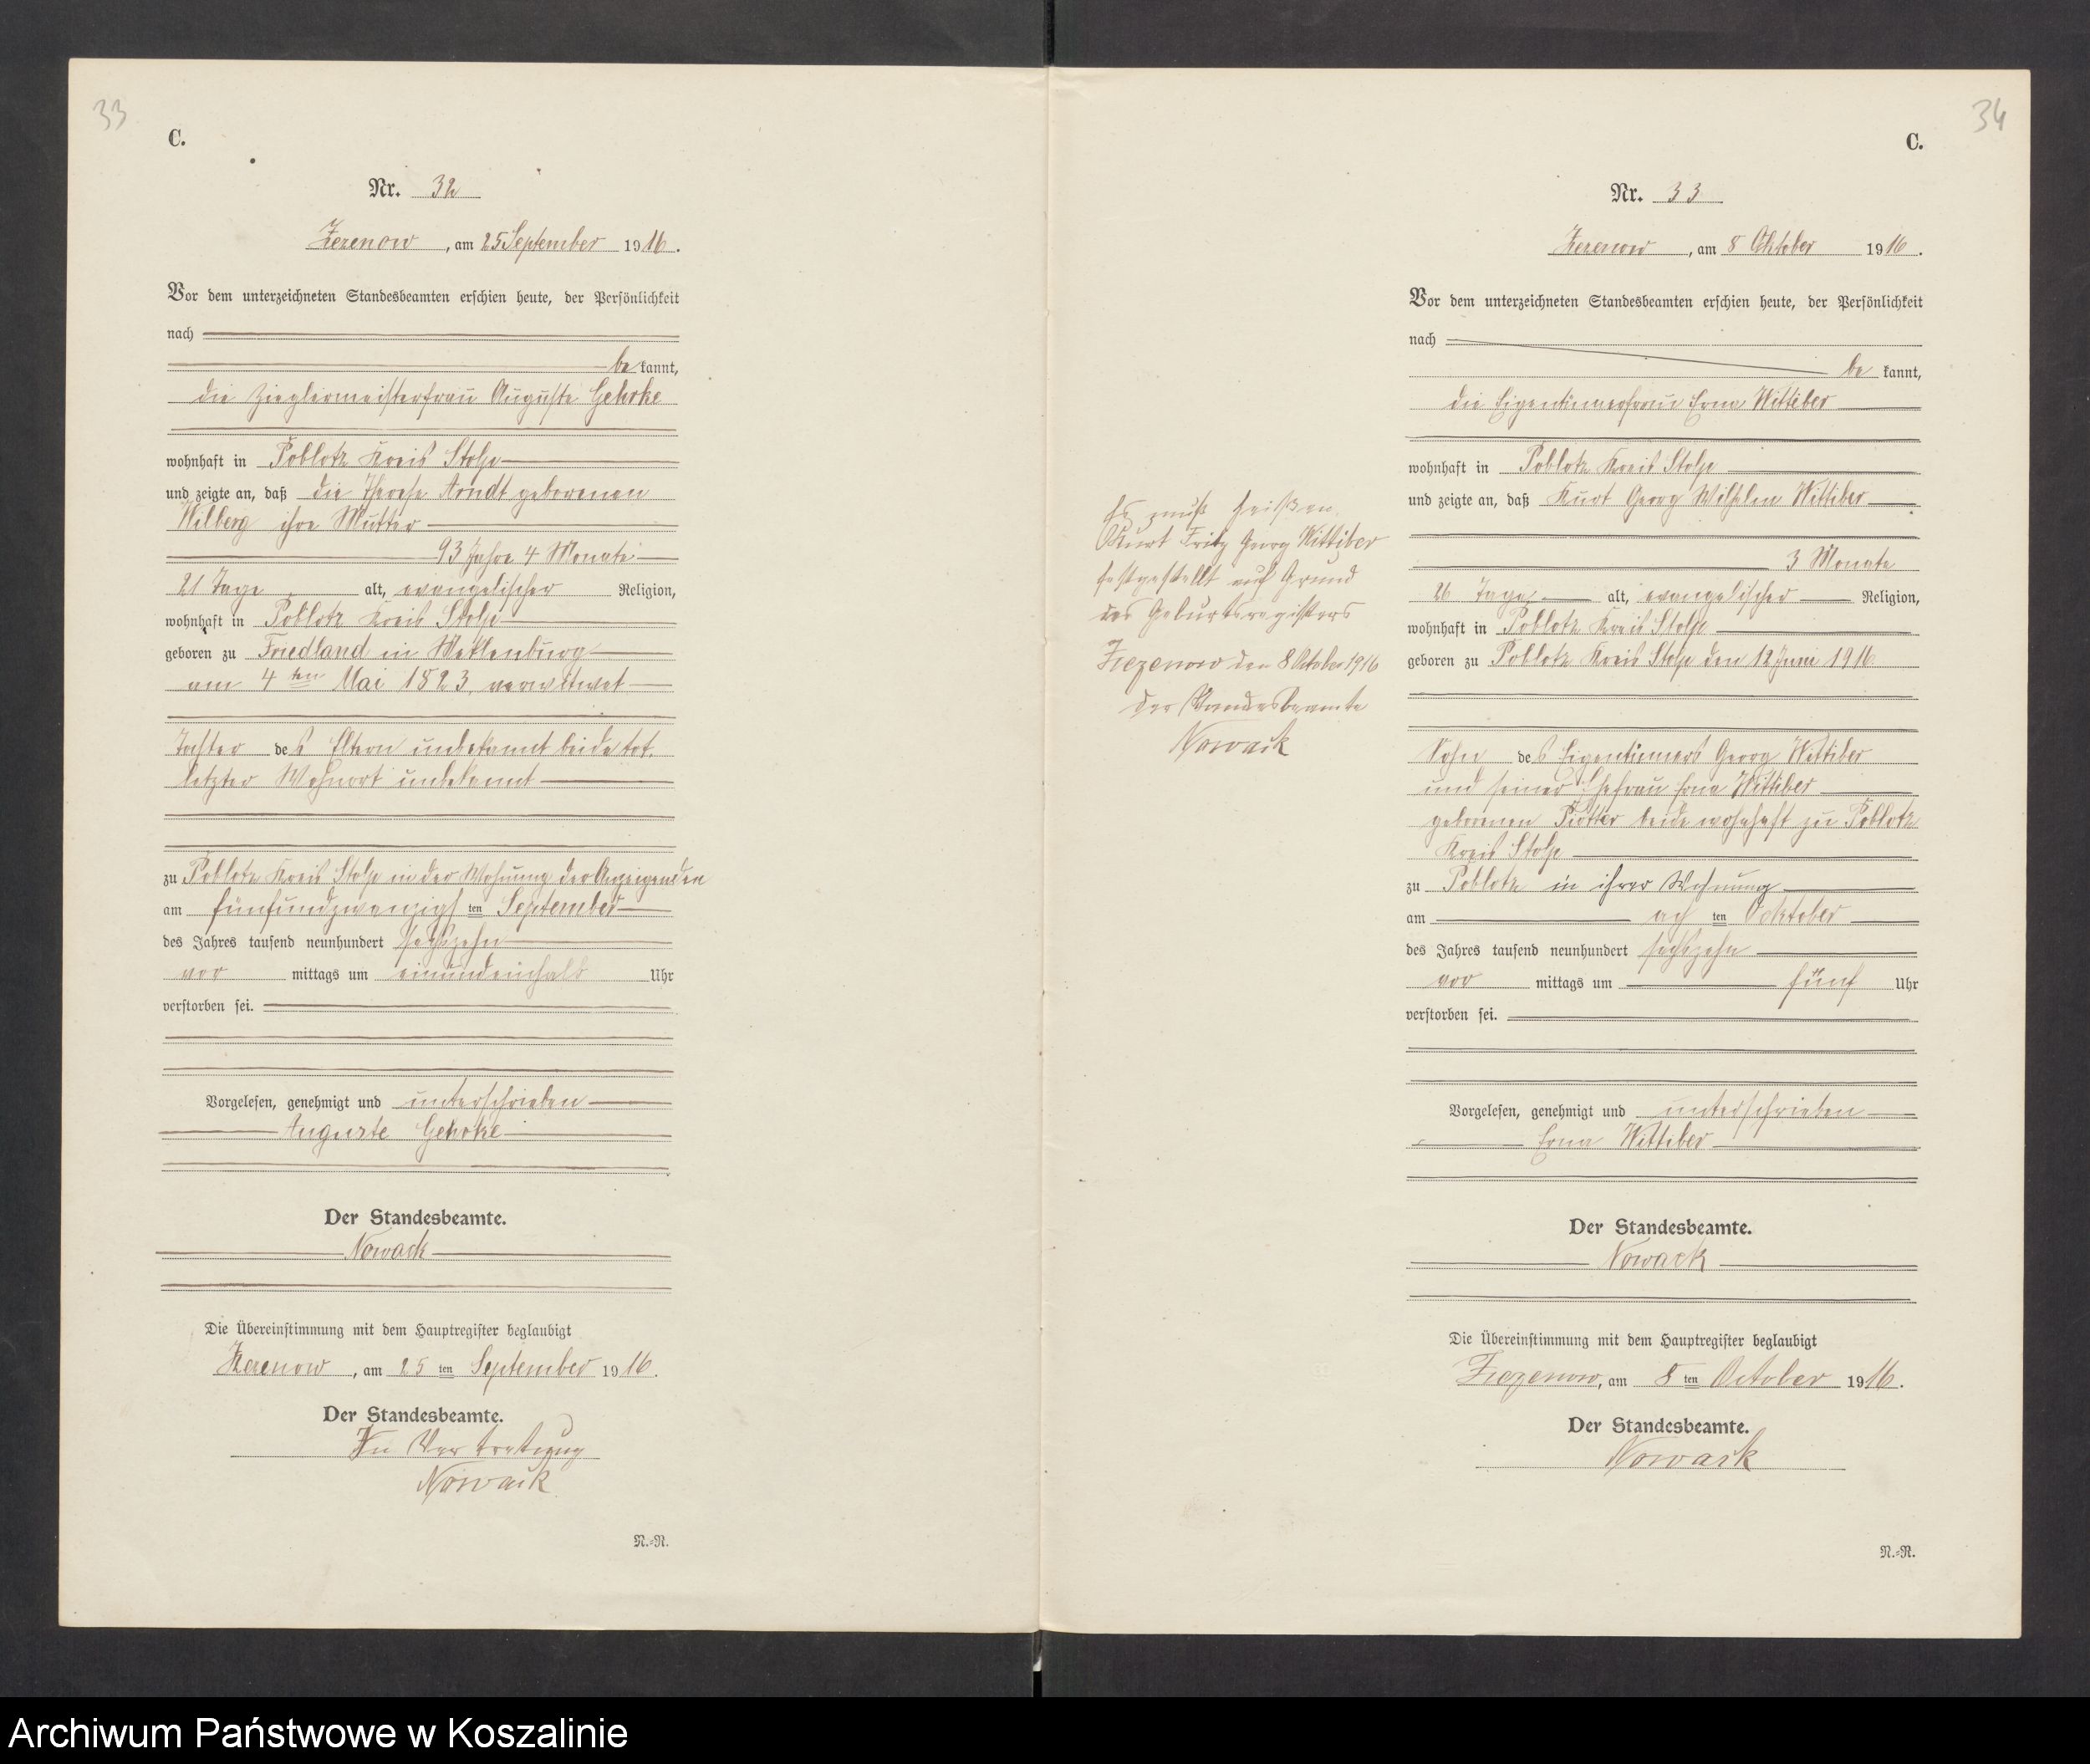 33
C.
Nr. 32
Zezenow, am 25 September 1916.
Vor dem unterzeichneten Standesbeamten erschien heute, der Persönlichkeit
nach
be kannt,
die Zieglermeisterfrau Auguste Gehrke
wohnhaft in Poblotz Kreis Stolp
und zeigte an, daß die Therese Arndt geborenen
Wilberg ihre Mutter
93 Jahre 4 Monate
21 Tage alt, evangelischer Religion,
wohnhaft in Poblotz Kreis Stolp
geboren zu Friedland in Meklenburg
am 4ten Mai 1823, verwitwet
Tochter des Eltern unbekannt beide tot.
letzter Wohnort unbekannt
zu Poblotz Kreis Stolp in der Wohnung der Anzeigenden
am fünfundzwanzigsten September
des Jahres tausend neunhundert sechszehn
vor mittags um einundeinhalb Uhr
verstorben sei.
Vorgelesen, genehmigt und unterschrieben
Auguste Gehrke
Der Standesbeamte.
Nowack
Die Übereinstimmung mit dem Hauptregister beglaubigt
Zezenow, am 25 ten September 1916.
Der Standesbeamte.
In Vertretung
Nowack
N.-N.
34
C.
Nr. 33
Zezenow, am 8 Oktober 1916.
Vor dem unterzeichneten Standesbeamten erschien heute, der Persönlichkeit
nach
be kannt,
die Eigentümerfrau Erna Wittiber
wohnhaft in Poblotz Kreis Stolp
und zeigte an, daß Kurt Georg Wilhelm Wittiber
3 Monate
26 Tage alt, evangelischer Religion,
wohnhaft in Poblotz Kreis Stolp
geboren zu Poblotz Kreis Stolp den 12 Juni 1916
Sohn des Eigentümers Georg Wittiber
und seiner Ehefrau Erna Wittiber
geborenen beide wohnhaft zu Poblotz
Kreis Stolp
zu Poblotz in ihrer Wohnung
am ach ten Ocktober
des Jahres tausend neunhundert sechszehn
vor mittags um fünf Uhr
verstorben sei.
Vorgelesen, genehmigt und unterschrieben
Erna Wittiber
Der Standesbeamte.
Nowack
Die Übereinstimmung mit dem Hauptregister beglaubigt
Zezenow, am 8 ten October 1916.
Der Standesbeamte.
Nowack
N.-N.
Es muß heißen
Kurt Fritz Georg Wittiber
festgestellt auf Grund
des Geburtsregisters
Zezenow den 8 October 1916
der Standesbeamte
Nowack
Archiwum Państwowe w Koszalinie